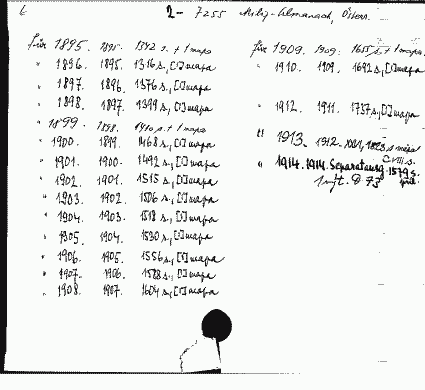 2- 7255 Miliz-Almanach, Österr.
für 1895. 1895. 1342 s. + 1 mapa
" 1896. 1895. 1316 s., [1] mapa
" 1897. 1896. 1376 s., [1] mapa
" 1898. 1897. 1399 s., [1] mapa
" 1899. 1898. 1410 s. + 1 mapa
" 1900. 1899. 1468 s., [1] mapa
" 1901. 1900. 1492 s., [1] mapa
" 1902. 1901. 1515 s., [1] mapa
" 1903. 1902. 1506 s., [1] mapa
" 1904. 1903. 1518 s., [1] mapa
" 1905. 1904. 1530 s., [1] mapa
" 1906. 1905. 1556 s., [1] mapa
" 1907. 1906. 1588 s., [1] mapa
" 1908. 1907. 1604 s., [1] mapa
für 1909. 1909. 1655 s. + 1 mapa.
" 1910. 1909. 1692 s., [1] mapa
" 1912. 1911. 1757 s., [1] mapa
" 1913. 1912. XXII, 1823 s. mapa
" 1914. 1914. Separatausg. 1579 s.